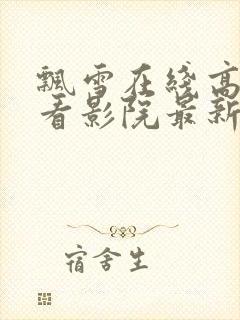 飘雪在线高
看影院最新
宿舍生